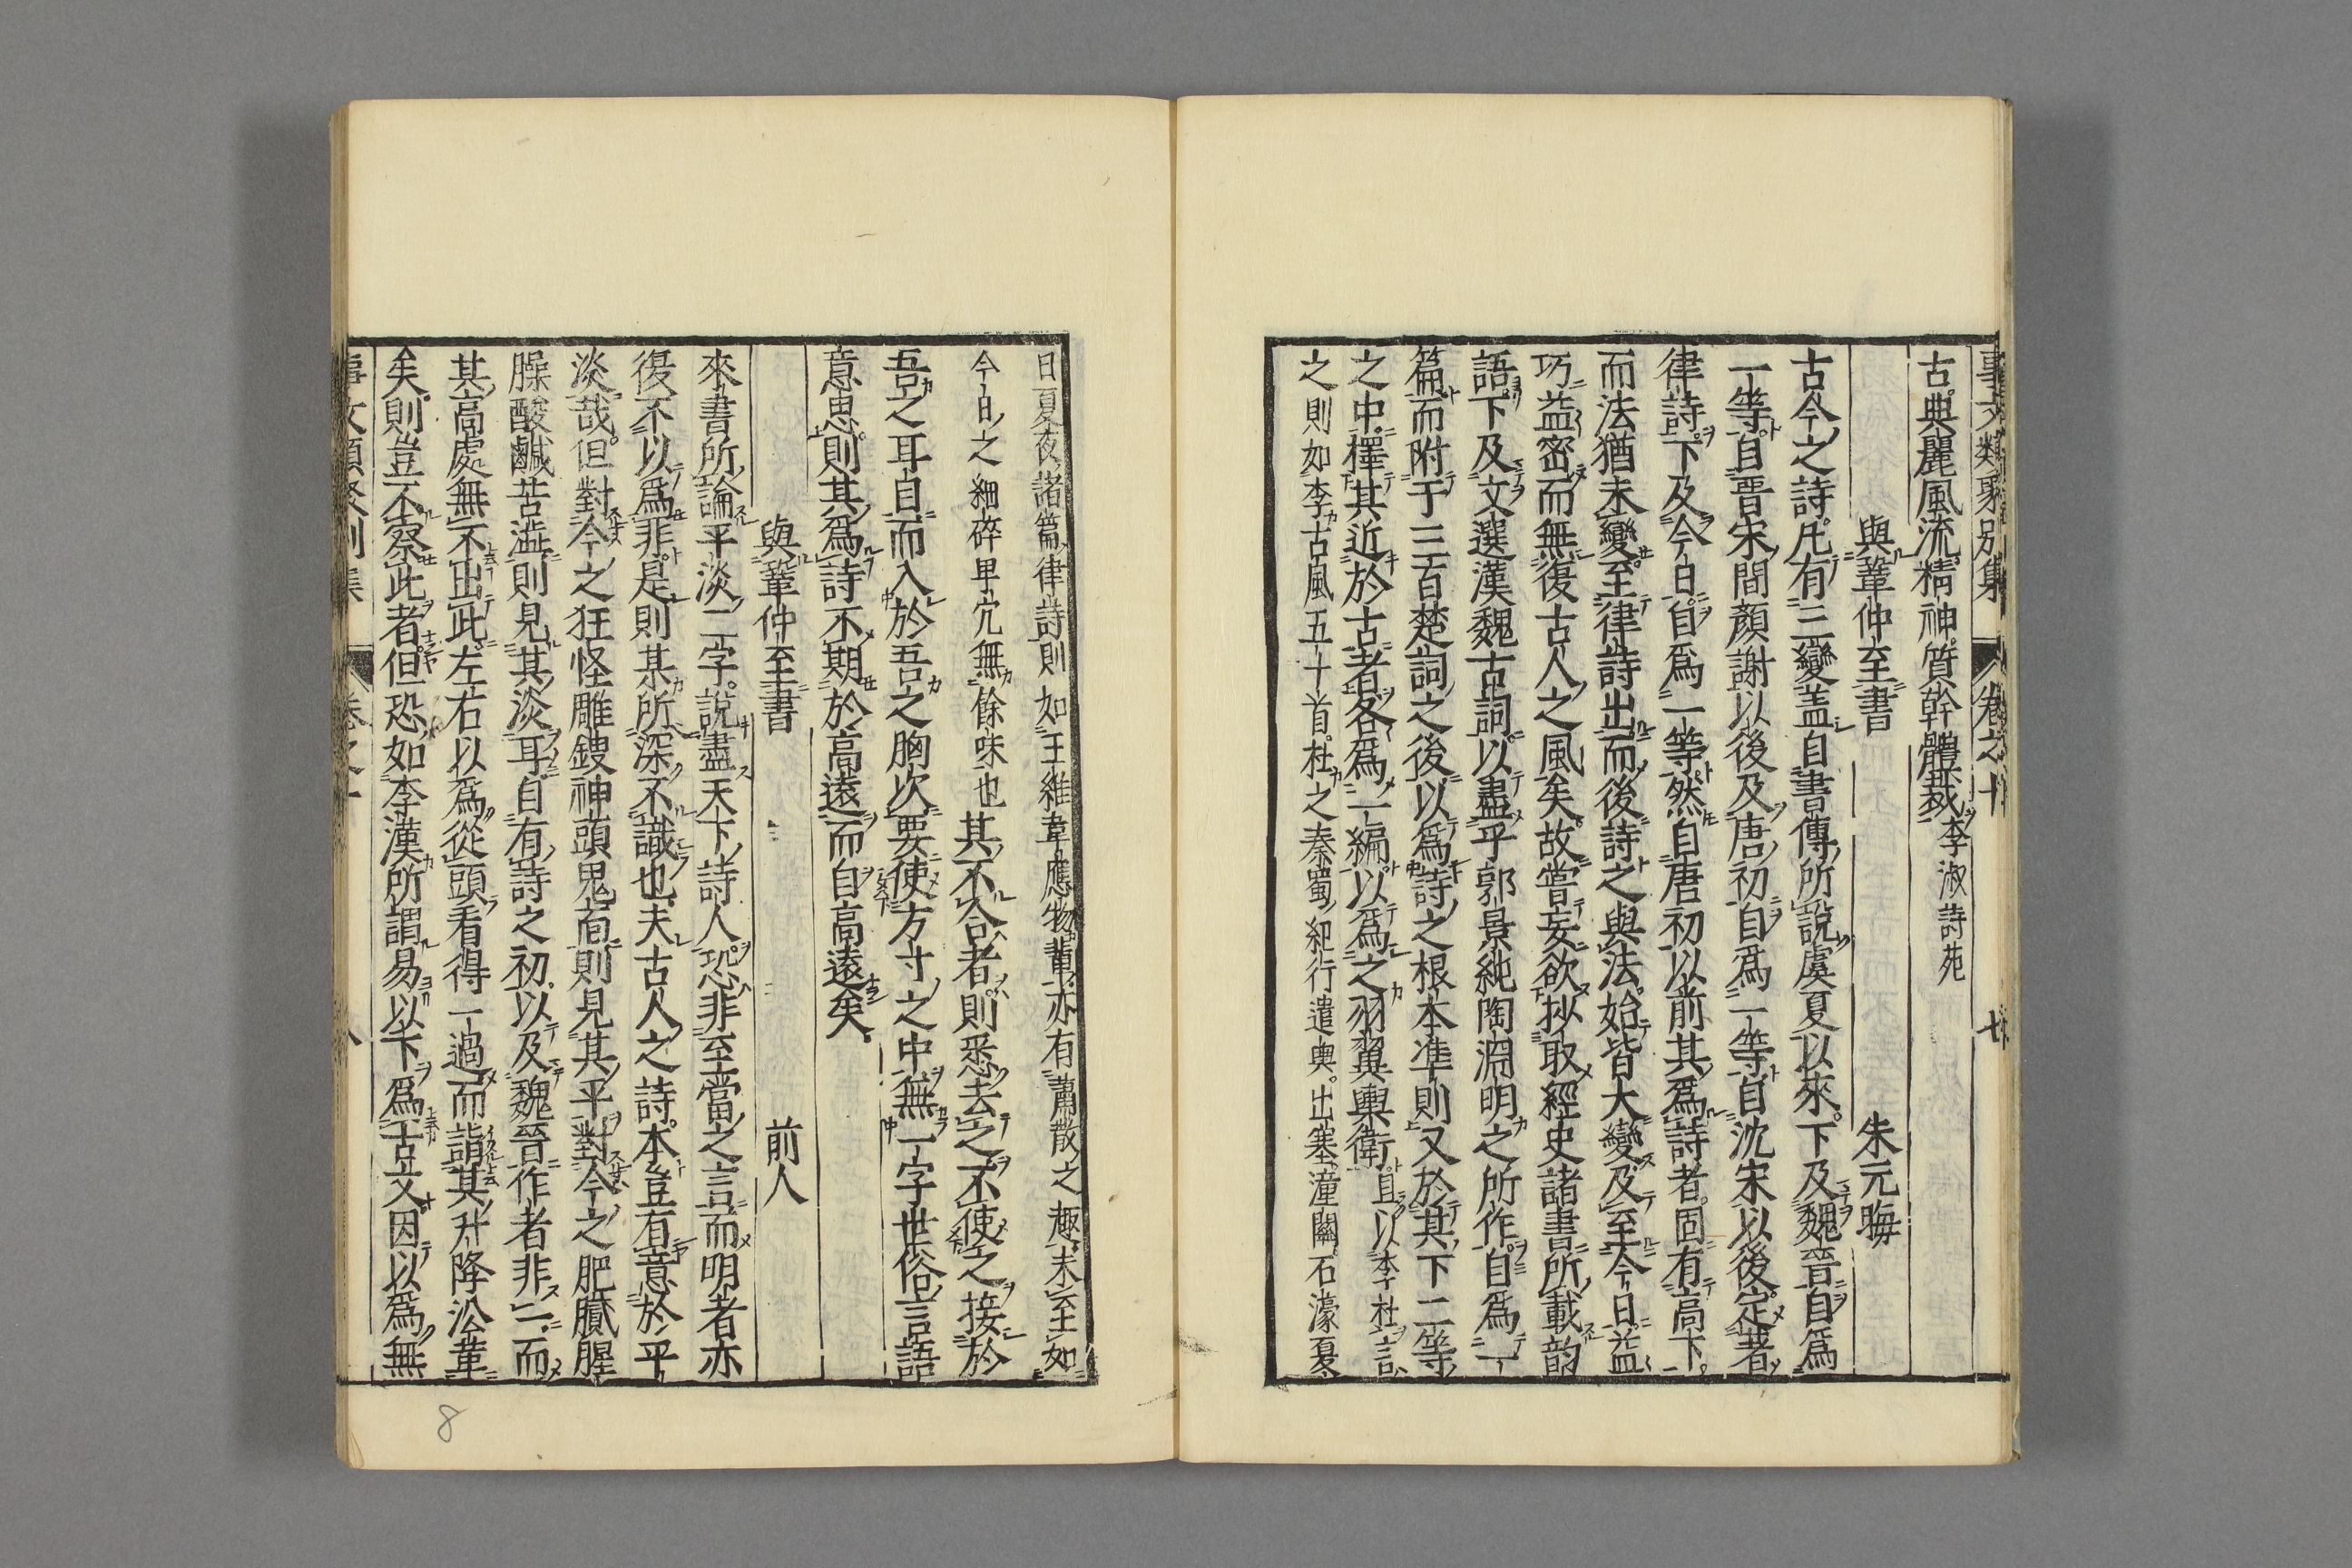 事文類聚別集 卷之十 七
古典麗風流精神質幹體裁李淑詩苑
與鞏仲至書 朱元晦
古今之詩凡有三變蓋自書傳所說虞夏以來下及魏晉自爲
一等自晋宋間顏謝以後及唐初自爲一等自沈宋以後定著
律詩下及今日自爲一等然自唐初以前其爲詩者固有高下
而法猶未變至律詩出而後詩之與法始皆大變及至今日益
巧益密而無復古人之風矣故嘗妄欲抄取經史諸書所載韵
語下及文選漢魏古詞以盡乎郭景純陶淵明之所作自爲一
篇而附于三百楚詞之後以爲詩之根本準則又於其下二等
之中擇其近於古者各爲一編以爲之羽翼輿衛且以李杜言
之則如李古風五十首杜之秦蜀紀行遣興出塞潼關石濠夏
日夏夜諸篇律詩則如王維韋應物輩亦有蕭散之趣未至如
今日之細碎卑冗無餘味也其不合者則悉去之不使之接於
吾之耳自而入於吾之胸次要使方寸之中無一字世俗言語
意思則其爲詩不期於高遠而自高遠矣
與鞏仲至書 前人
來書所論平淡二字說盡天下詩人恐非至當之言而明者亦
復不以爲非是則某所深不識也夫古人之詩本豈有意於平
淡哉但對今之狂怪雕鎪神頭鬼面則見其平對今之肥膩腥
臊酸鹹苦澁則見其淡耳自有詩之初以及魏晉作者非一而
其高處無不出此左右以爲從頭看得一過而諳其升降㳂革
矣則豈不察此者但恐如李漢所謂易以下爲古文因以爲無
事文類聚別集 卷之十 八
8